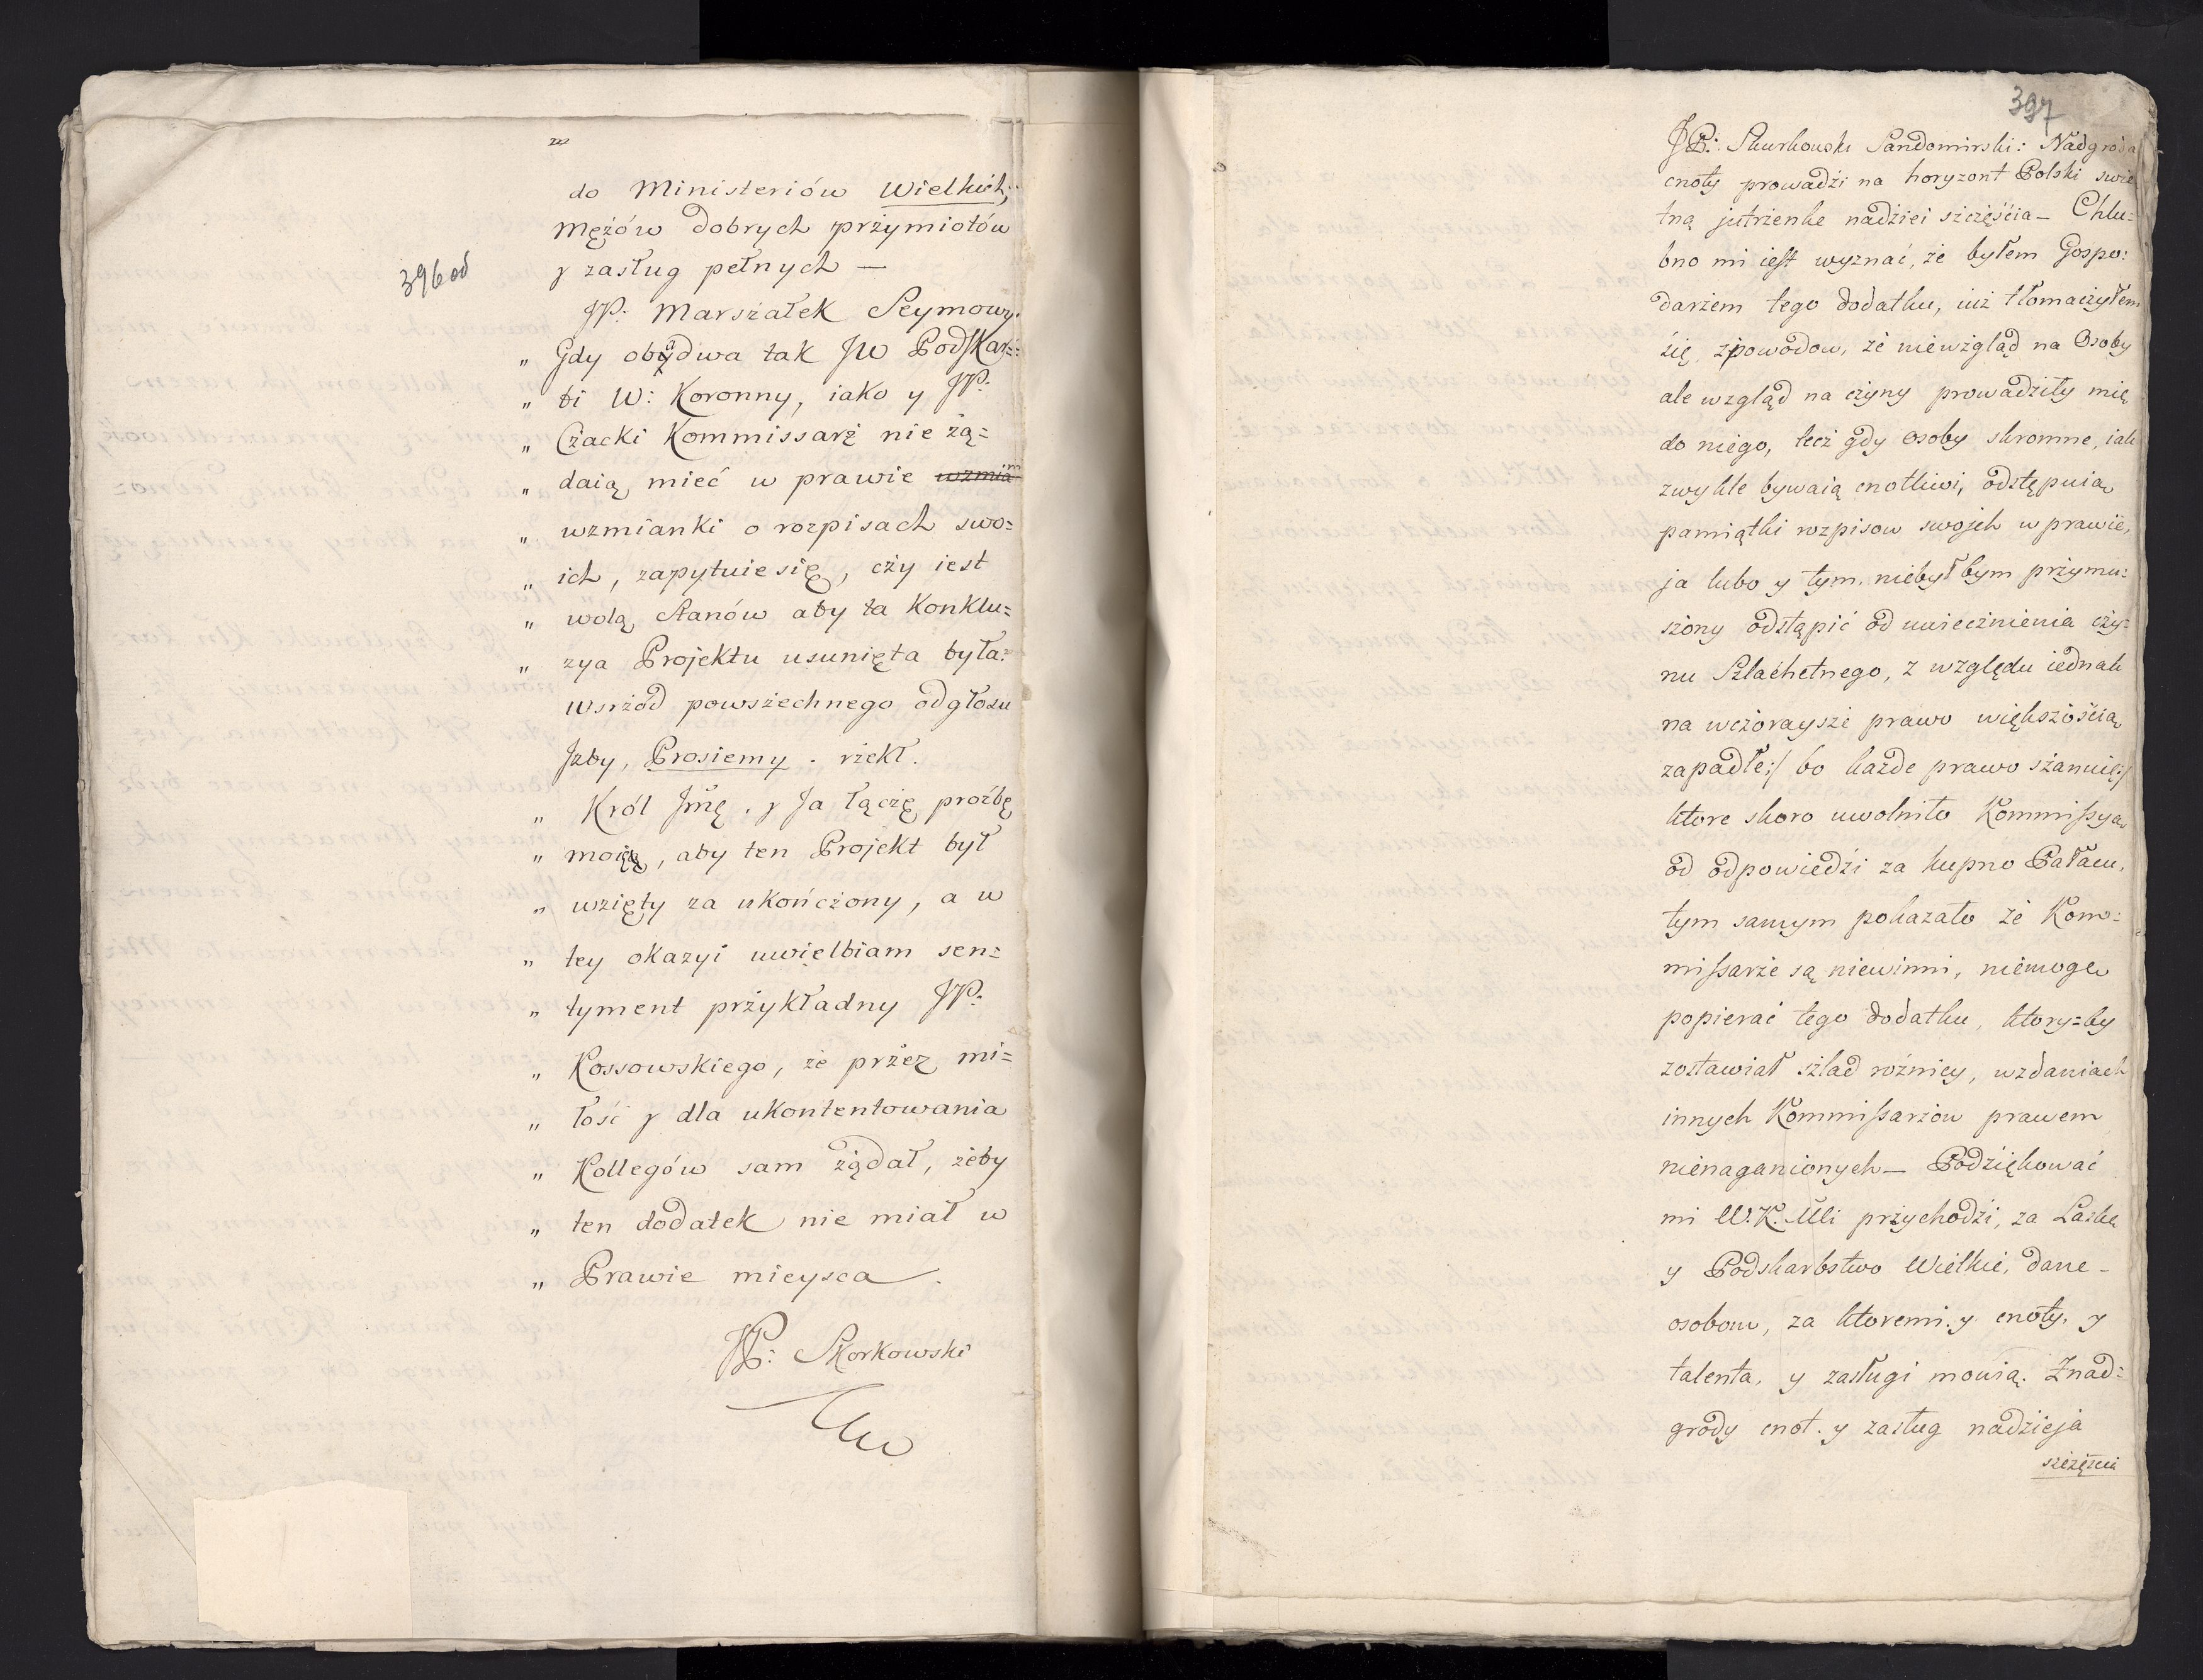 396 od
do Ministeriów Wielkich,
Mężów dobrych przymiotów
y zasług pełnych —
JP: Marszałek Seymowy.
„ Gdy obydwa tak JW Podskar=
„ bi W: Koronny, iako y JP:
„ Czacki Kommissarz nie żą=
„ daią mieć w prawie wzmian
„ wzmianki o rozpisach swo=
„ ich, zapytuie się, czy iest
„ wolą Stanów aby ta Konklu=
„ zya Projektu usunięta była?
Wsrzód powszechnego odgłosu
Jzby, Prosiemy. rzekł.
„ Król Jmę. y Ja łączę proźbę
„ moię, aby ten Projekt był
„ wzięty za ukończony, a w
„ tey okazyi uwielbiam sen=
„ tyment przykładny JP:
„ Kossowskiego, że przez mi=
„ łość y dla ukontentowania
„ Kollegów sam żądał, żeby
„ ten dodatek nie miał w
„ Prawie mieysca.
JP: Skorkowski
397
JP: Skurkowski Sandomirski: Nadgroda
cnoty prowadzi na horyzont Polski swie
tną jutrzenke nadziei szczęścia — Chlu=
bno mi iest wyznać, że byłem Gospo:
darzem tego dodatku, iuż tłomaczyłem
się z powodow, że niewzgląd na Osoby
ale wzgląd na czyny prowadziły mię
do niego, lecz gdy osoby skromne, iak
zwykle bywaią cnotliwi, odstępuią
pamiątki rozpisow swojch w prawie,
ja lubo y tym niebyłbym przymu:
szony odstąpić od uwiecznienia czy=
nu Szlachetnego, z względu iednak
na wczorayszé prawo większością
zapadłe :/ bo każde prawo szanuię :/
ktore skoro uwolniło Kommissyą
od odpowiedzi za kupno Pałacu,
tym samym pokazało że Kom=
missarze są niewinni, niemogę
popierać tego dodatku, ktory=by
zostawiał szlad rożnicy, w zdaniach
innych Kommissarzow prawem
nienaganionych — Podziękować
mi W.K. Mci przychodzi, za Laskę
y Podskarbstwo Wielkie, dane
osobom, za ktoremi y cnoty, y
talenta, y zasługi mowią. Z nad=
grody cnot y zasług nadzieja
szczęscia